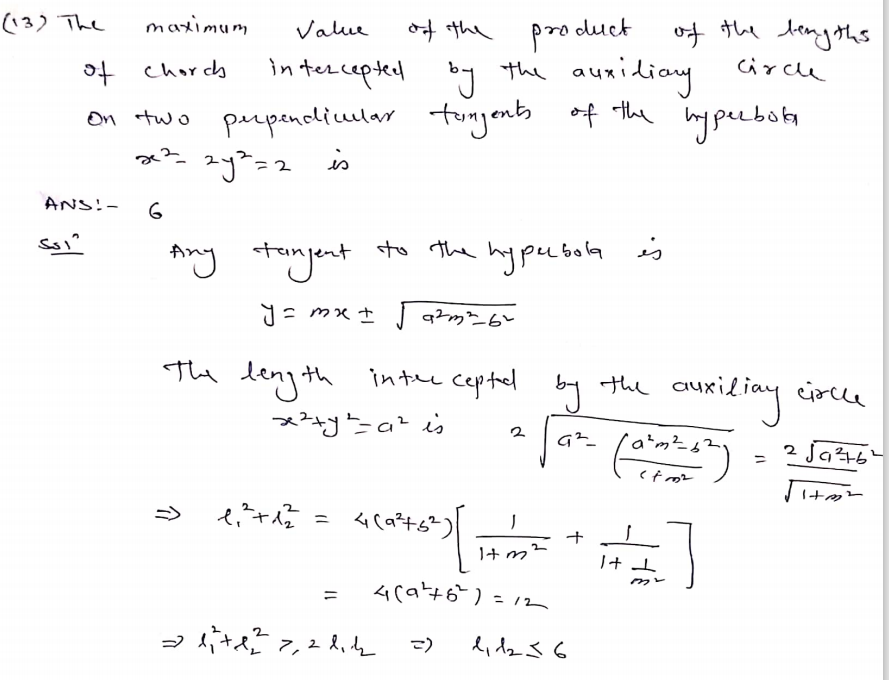 (13) The maximum value of the product of the lengths
of chords intercepted by the auxiliary circle
on two perpendicular tangents of the hyperbola
x² - 2y² = 2 is
ANS:- 6
Solⁿ Any tangent to the hyperbola is
y = mx ± √(a²m² - b²)
The length intercepted by the auxiliary circle
x² + y² = a² is 2√(a² - (a²m² - b²)/(1 + m²)) = 2√(a² + b²)/√(1 + m²)
⇒ l₁² + l₂² = 4(a² + b²)[1/(1 + m²) + 1/(1 + 1/m²)]
= 4(a² + b²) = 12
⇒ l₁² + l₂² ≥ 2 l₁ l₂ ⇒ l₁ l₂ ≤ 6